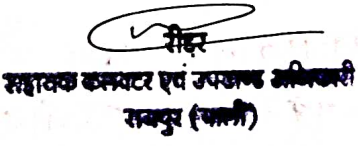 रीडर
सहायक कलक्टर एवं उपखण्ड अधिकारी
रायपुर (पाली)